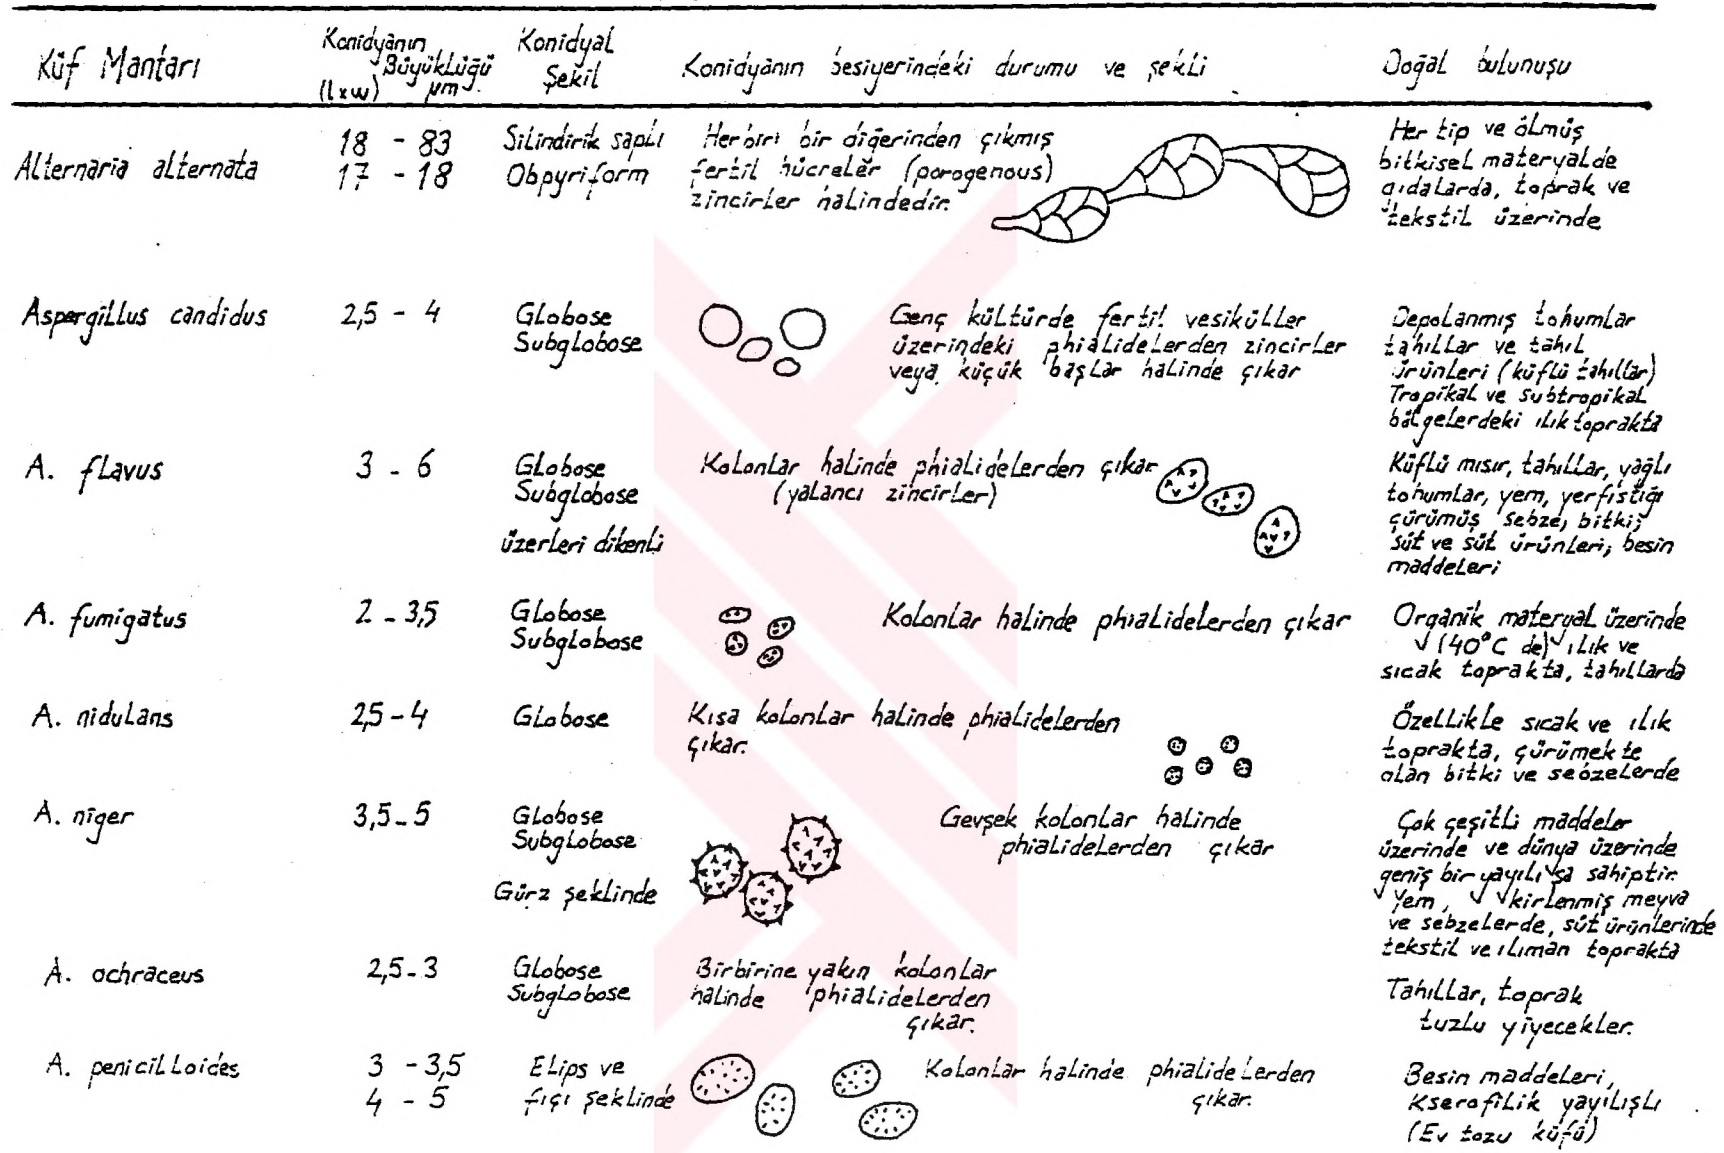 Küf Mantarı
Konidyanın
Büyüklüğü
(lxw) µm
Konidyal
Şekil
Konidyanın besiyerindeki durumu ve şekli
Doğal bulunuşu
Alternaria alternata
18 - 83
17 - 18
Silindirik saplı
Obpyriform
Herbiri bir diğerinden çıkmış
fertil hücreler (porogenous)
zincirler halindedir.
Her tip ve ölmüş
bitkisel materyalde
gıdalarda, toprak ve
tekstil üzerinde
Aspergillus candidus
2,5 - 4
Globose
Subglobose
Genç kültürde fertil vesiküller
üzerindeki phialidelerden zincirler
veya küçük başlar halinde çıkar
Depolanmış tohumlar
tahıllar ve tahıl
ürünleri (küflü tahıllar)
Tropikal ve subtropikal
bölgelerdeki ılık toprakta
A. flavus
3 - 6
Globose
Subglobose
üzerleri dikenli
Kolonlar halinde phialidelerden çıkar
(yalancı zincirler)
Küflü mısır, tahıllar, yağlı
tohumlar, yem, yerfıstığı
çürümüş sebze, bitki;
süt ve süt ürünleri; besin
maddeleri
A. fumigatus
2 - 3,5
Globose
Subglobose
Kolonlar halinde phialidelerden çıkar
Organik materyal üzerinde
(40°C de) ılık ve
sıcak toprakta, tahıllarda
A. nidulans
2,5 - 4
Globose
Kısa kolonlar halinde phialidelerden
çıkar.
Özellikle sıcak ve ılık
toprakta, çürümekte
olan bitki ve sebzelerde
A. niger
3,5 - 5
Globose
Subglobose
Gürz şeklinde
Gevşek kolonlar halinde
phialidelerden çıkar
Çok çeşitli maddeler
üzerinde ve dünya üzerinde
geniş bir yayılışa sahiptir.
Yem, kirlenmiş meyva
ve sebzelerde, süt ürünlerinde
tekstil ve ılıman toprakta
A. ochraceus
2,5 - 3
Globose
Subglobose
Birbirine yakın kolonlar
halinde phialidelerden
çıkar.
Tahıllar, toprak
tuzlu yiyecekler.
A. penicilloides
3 - 3,5
4 - 5
Elips ve
fıçı şeklinde
Kolonlar halinde phialidelerden
çıkar.
Besin maddeleri,
Kserofilik yayılışlı
(Ev tozu küfü)